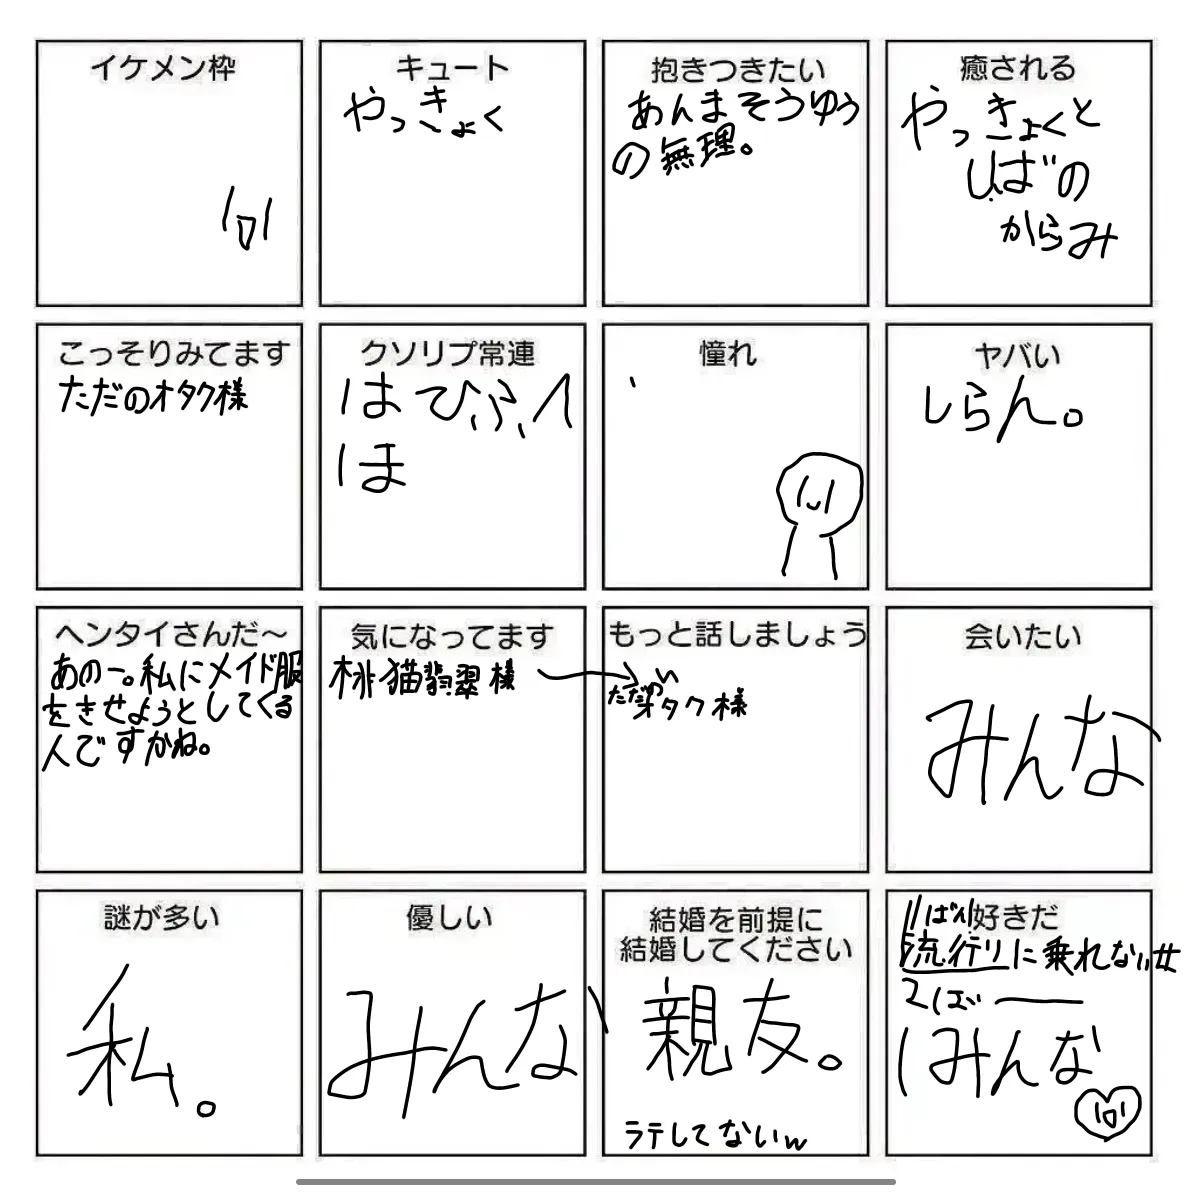 イケメン枠
キュート
やっきょく
抱きつきたい
あんまそうゆう
の無理。
癒される
やっきょくと
しばの
からみ
こっそりみてます
ただのオタク様
クソリプ常連
はひふへ
ほ
憧れ
ヤバい
しらん。
ヘンタイさんだ～
あのー。私にメイド服
をきせようとしてくる
人ですかね。
気になってます
桃猫翡翠様
もっと話しましょう
ただの
オタク様
会いたい
みんな
謎が多い
私。
優しい
みんな
結婚を前提に
結婚してください
親友。
ラテしてないw
好きだ
流行りに乗れない女
はみんな